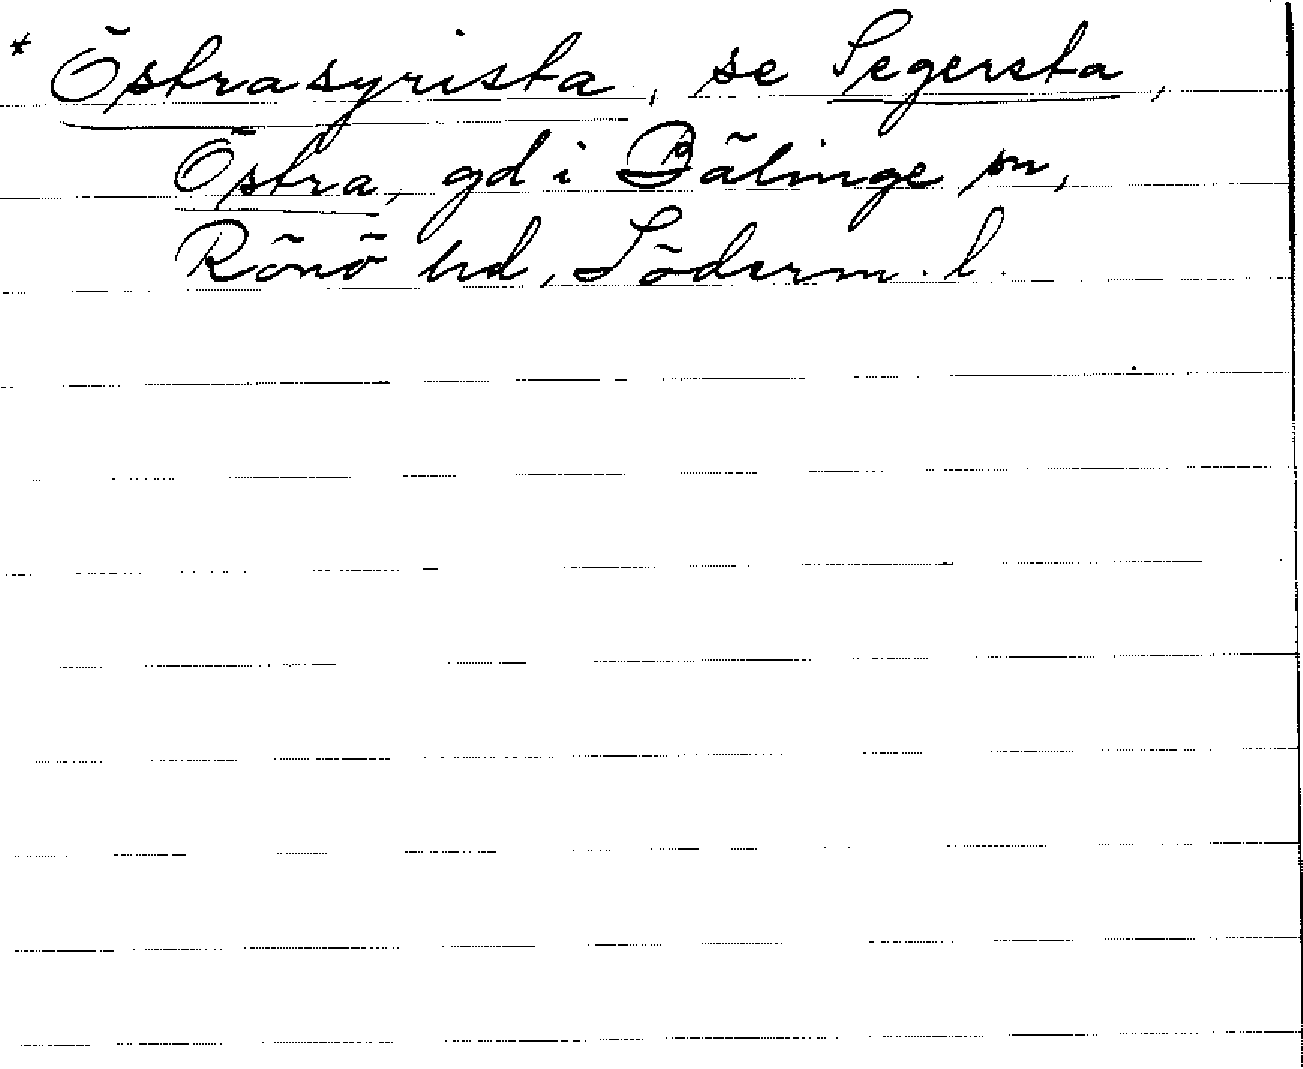 * Östrasyrista, se Segersta,
Östra, gd i Bälinge sn,
Rönö hd, Söderm. l.